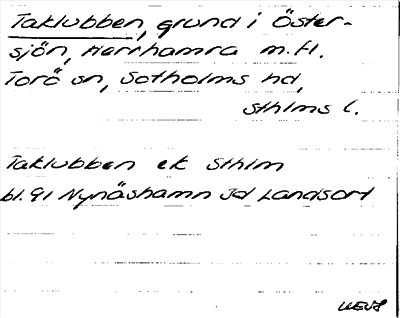 Taklubben, grund i Öster-
sjön, Herrhamra m.fl.
Torö sn, Sotholms hd,
Sthlms l.
Taklubben ek Sthlm
bl. 91 Nynäshamn Sd Landsort